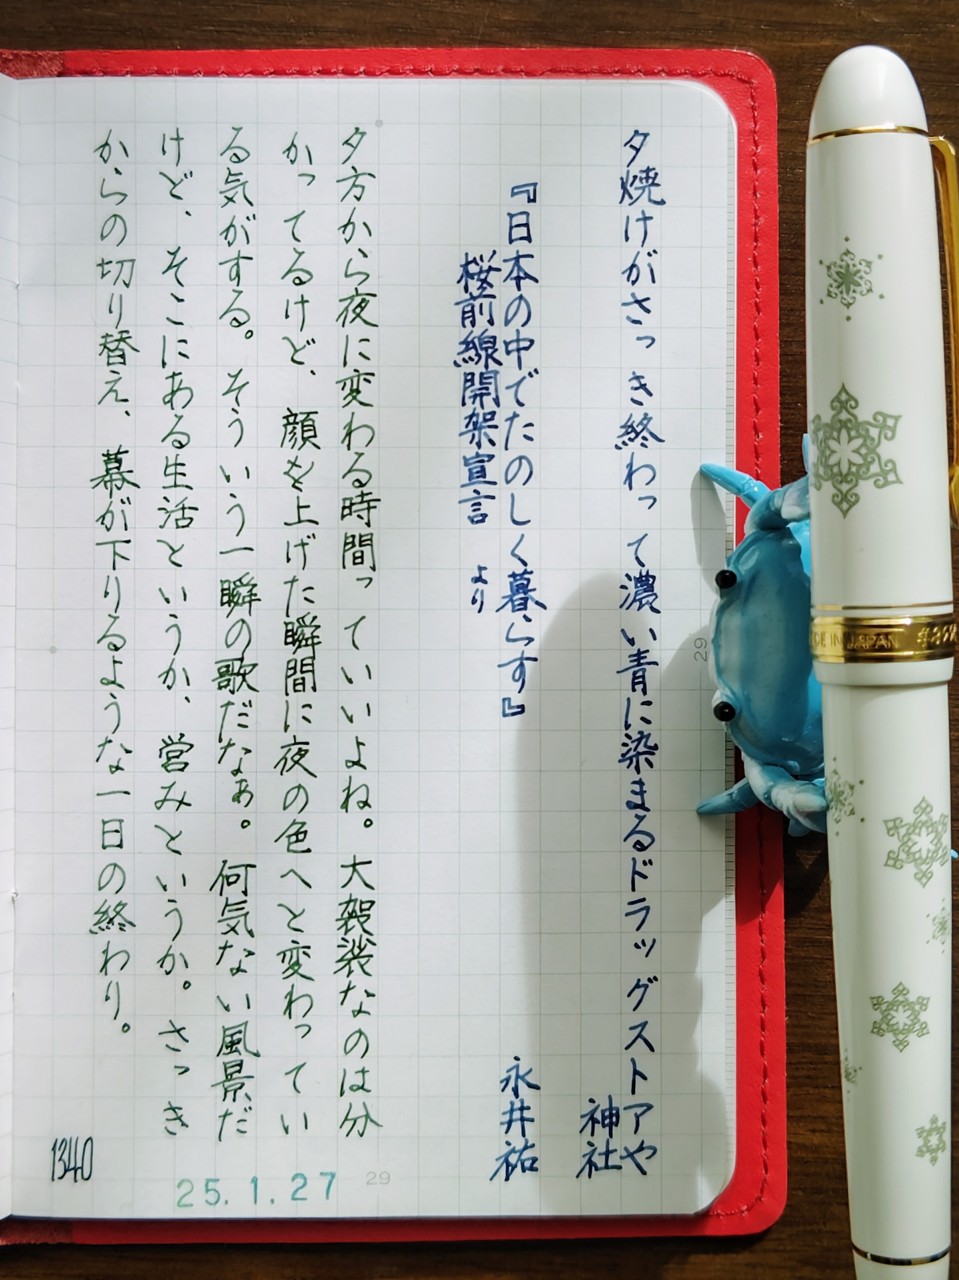 夕焼けがさっき終わって濃い青に染まるドラッグストアや
神社
『日本の中でたのしく暮らす』
永井祐
桜前線開架宣言 より
夕方から夜に変わる時間っていいよね。大袈裟なのは分
かってるけど、顔を上げた瞬間に夜の色へと変わってい
る気がする。そういう一瞬の歌だなぁ。何気ない風景だ
けど、そこにある生活というか、営みというか。さっき
からの切り替え、幕が下りるような一日の終わり。
1340
25.1.27
29
29
DE IN JAPAN